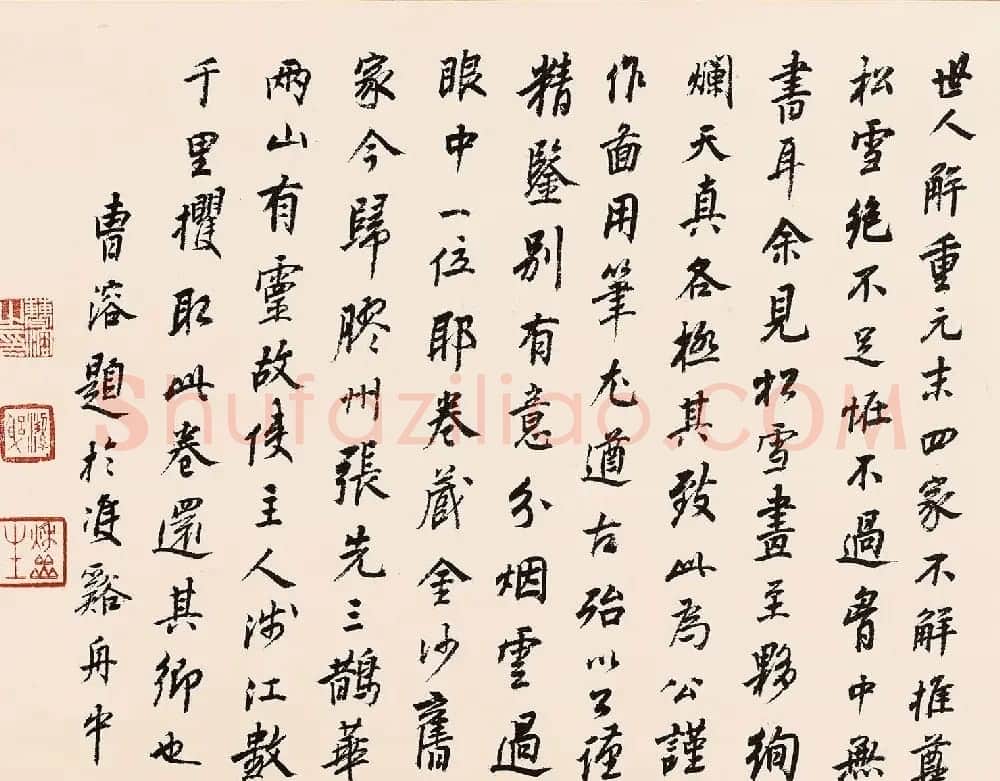 世人解重元末四家不解推尊
松雪絶不足怪不過胷中無
書耳余見松雪畫至夥絢
爛天真各極其致此為公謹
作画用筆尤遒古殆以公謹
精鑒別有意分烟雲過
眼中一位耶卷藏金沙舊
家今歸膠州張先三鵲華
兩山有靈故使主人涉江數
千里攫取此卷還其鄉也
曹溶題於雙谿舟中
Shufaziliao.COM